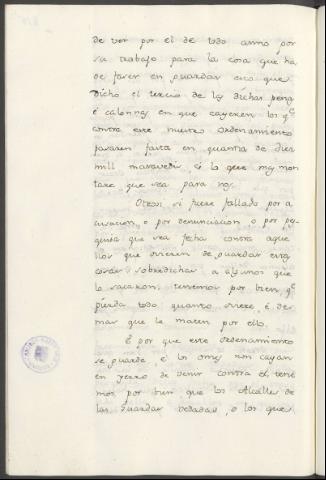 de ver por el de todo anno por
su trabajo para la cosa que ha
de facer en guardar esto que
dicho el tercio de las dichas penas
é calonnas en que cayeren los qe
contra este nuestro ordenamiento
pasaren fasta en quantia de diez
mill maravedis, é lo que mas mon
tare que sea para nos.
Otrosi si fuere fallado por a
cusacion, o por denunciacion o por pes
quisa que sea fecha contra aque
llos que ovieren de guardar estas
cosas sobredichas a algunos que
lo sacaron: tenemos por bien, qe
pierda todo quanto oviere, é de
mas que le maten por ello.
E por que este ordenamiento
se guarde é los omes non cayan
en yerro de venir contra el, tene
mos por bien que los Alcalles de
las guardas vedadas, o los que